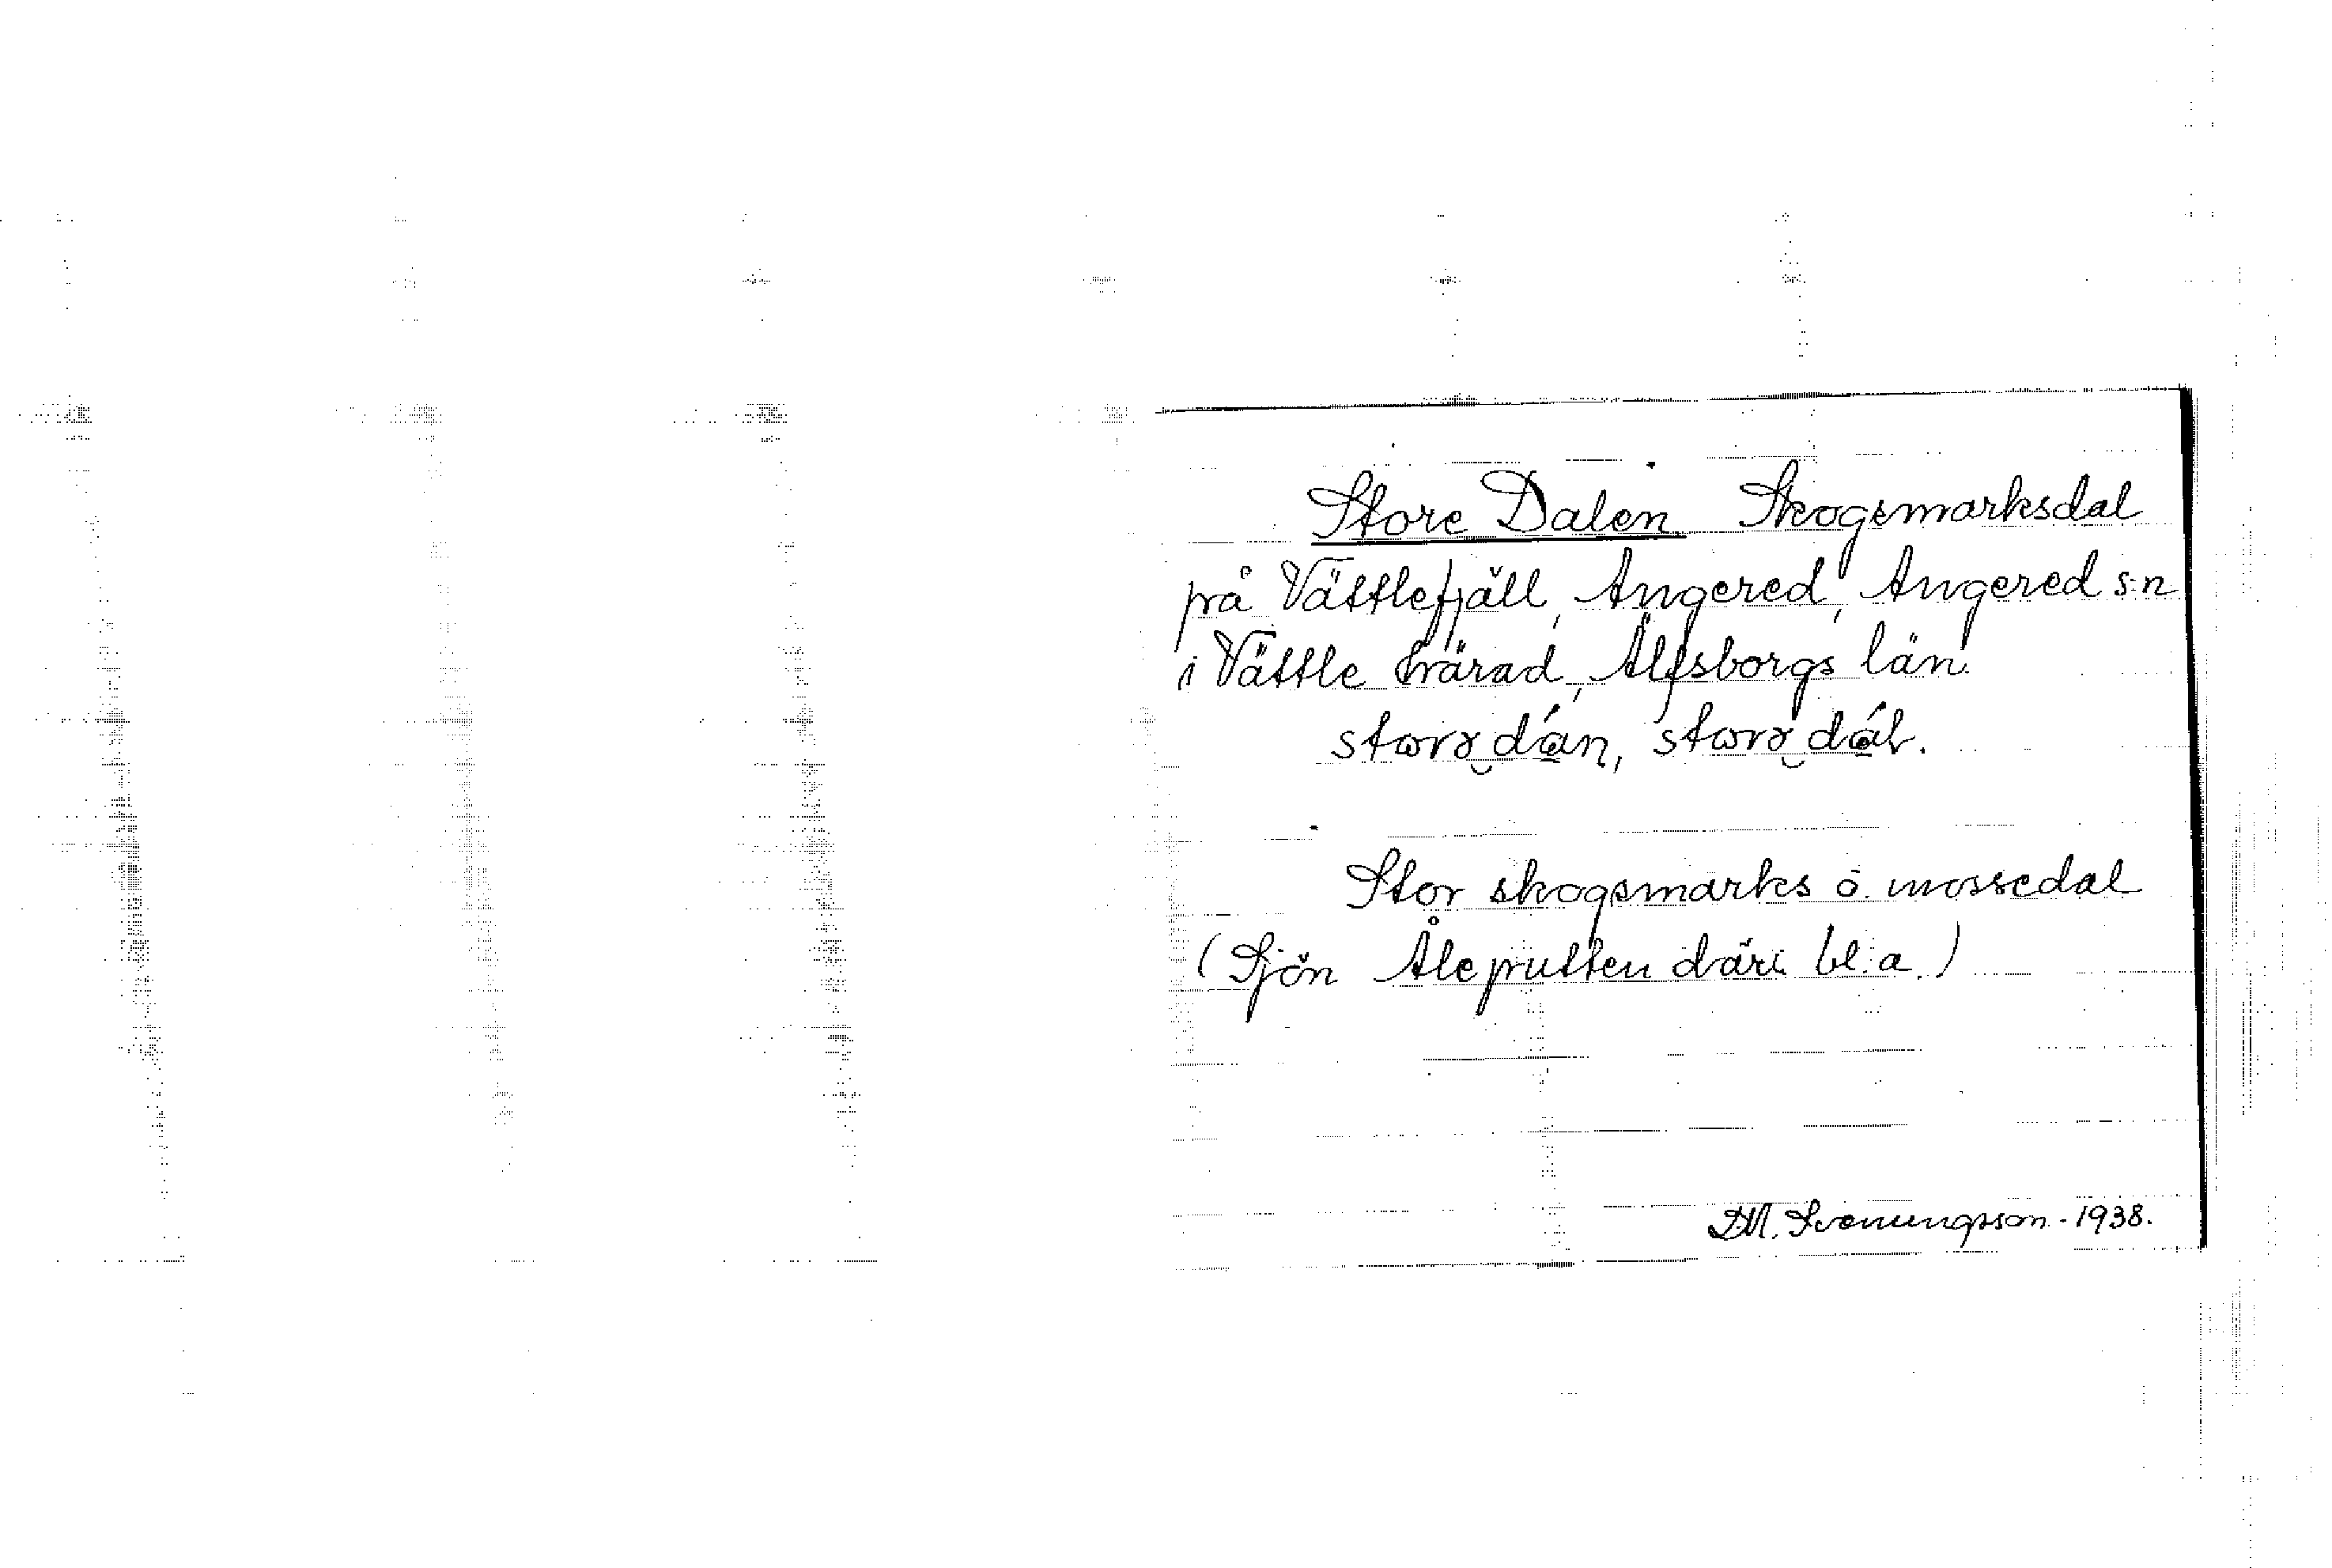 Store Dalen Skogsmarksdal
på Vättlefjäll, Angered, Angered s:n
i Vättle härad, Älfsborgs län.
Stor skogsmarks o. mossedal
(Sjön Åleputten däri bl. a.)
D.M. Svenungsson - 1938.